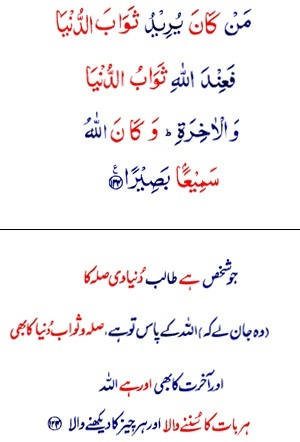 مَنْ كَانَ يُرِيْدُ ثَوَابَ الدُّنْيَا
فَعِنْدَ اللّٰهِ ثَوَابُ الدُّنْيَا
وَالْاٰخِرَةِ ؕ وَكَانَ اللّٰهُ
سَمِيْعًۢا بَصِيْرًا ﴿۱۳۴﴾ ع
جو شخص ہے طالب دُنیاوی صلہ کا
(وہ جان لے کہ) اللہ کے پاس تو ہے، صلہ و ثواب دُنیا کا بھی
اور آخرت کا بھی اور ہے اللہ
ہر بات کا سُننے والا اور ہر چیز کا دیکھنے والا ﴿۱۳۴﴾